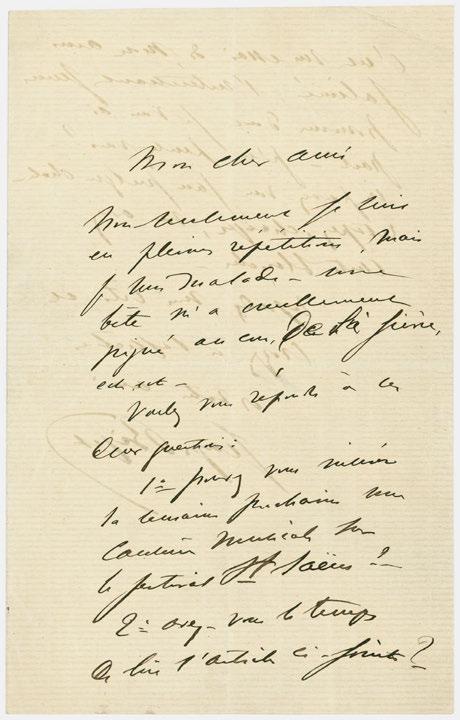 Mon cher ami
Non seulement je suis
en pleines répétitions, mais
je suis malade — une
bête m'a cruellement
piqué au cou, De là fièvre,
etc etc —
Voulez vous répondre à ces
deux questions :
1º pouvez vous
la semaine prochaine une
Causerie Musicale sur
le festival St Saëns ? —
2º avez-vous le temps
De lire l'article ci-joint ?